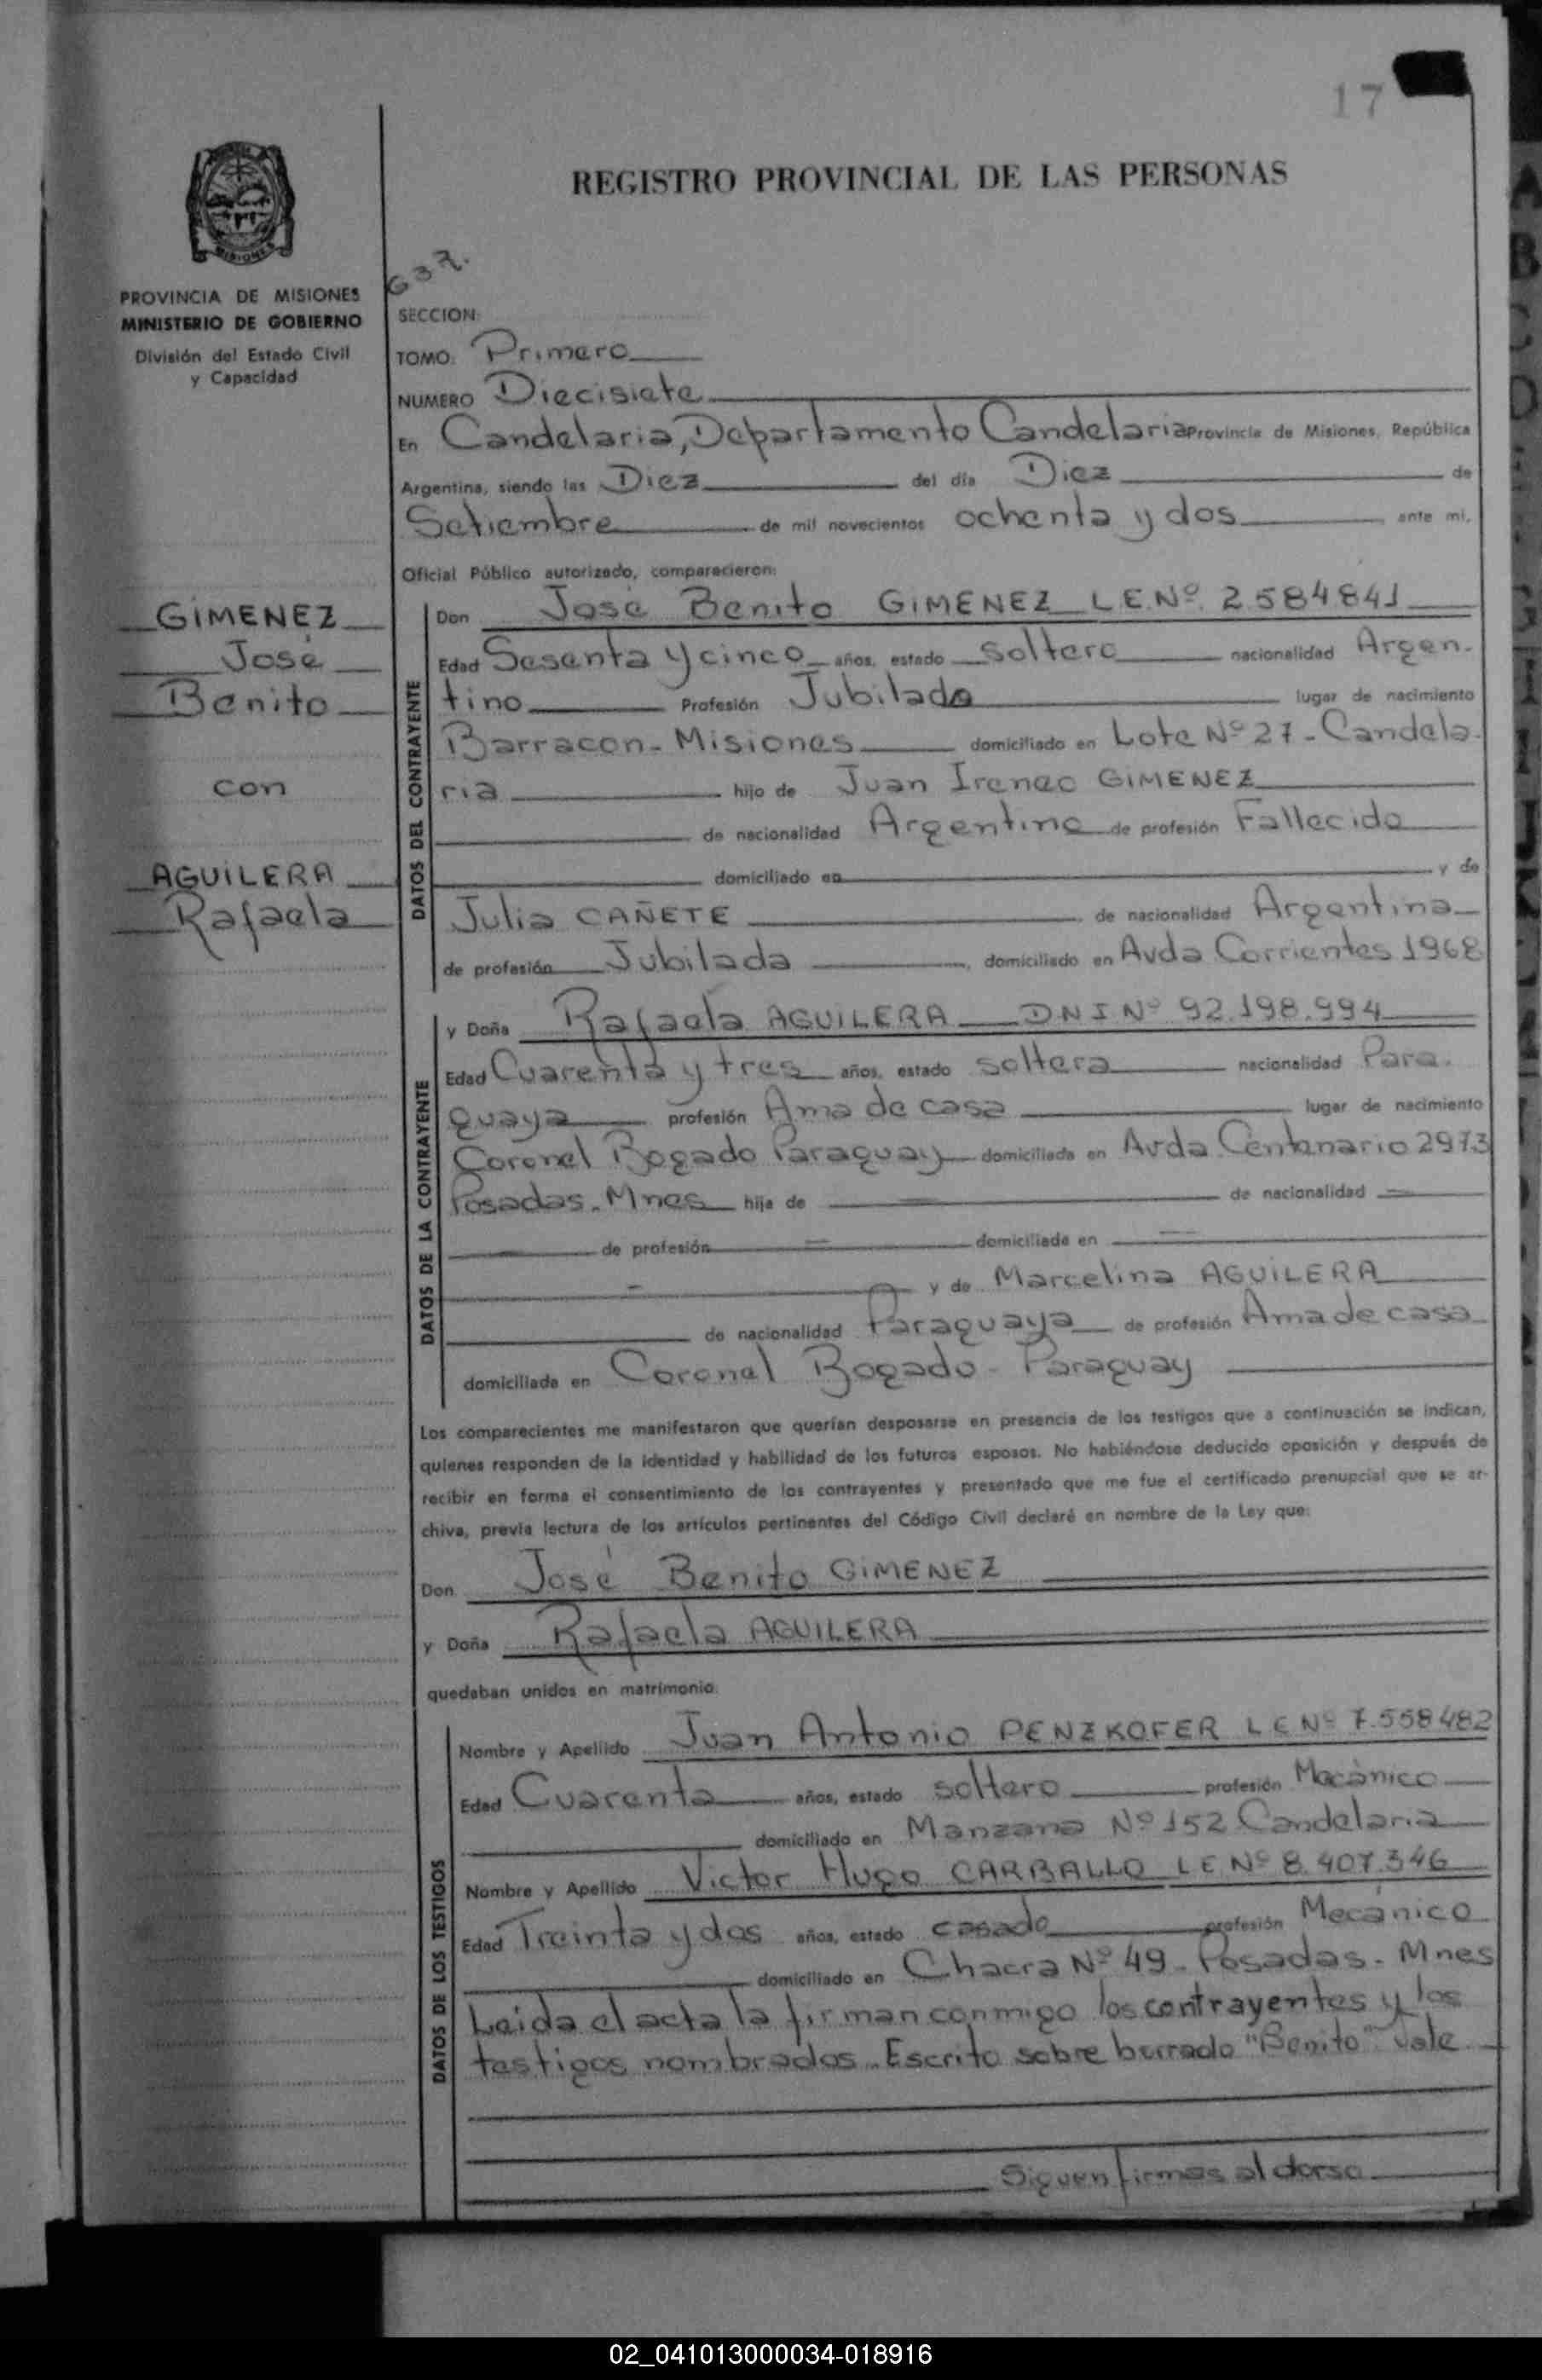 17
REGISTRO PROVINCIAL DE LAS PERSONAS
MISIONES
PROVINCIA DE MISIONES
MINISTERIO DE GOBIERNO
División del Estado Civil
y Capacidad
GIMENEZ
José
Benito
con
AGUILERA
Rafaela
637.
SECCION:
TOMO: Primero
NUMERO Diecisiete
En Candelaria, Departamento Candelaria Provincia de Misiones, República
Argentina, siendo las Diez del día Diez de
Setiembre de mil novecientos ochenta y dos ante mí,
Oficial Público autorizado, comparecieron:
DATOS DEL CONTRAYENTE
Don José Benito GIMENEZ L.E.Nº. 2584841
Edad Sesenta y cinco años, estado soltero nacionalidad Argen-
tino Profesión Jubilado lugar de nacimiento
Barracon - Misiones domiciliado en Lote Nº 27 - Candela-
ria hijo de Juan Ireneo GIMENEZ
de nacionalidad Argentino de profesión Fallecido
domiciliado en y de
Julia CAÑETE de nacionalidad Argentina
de profesión Jubilada, domiciliado en Avda Corrientes 1968
DATOS DE LA CONTRAYENTE
y Doña Rafaela AGUILERA DNI Nº 92.198.994
Edad Cuarenta y tres años, estado soltera nacionalidad Para-
guaya profesión Ama de casa lugar de nacimiento
Coronel Bogado Paraguay domiciliada en Avda Centenario 2973
Posadas. Mnes hija de de nacionalidad
de profesión domiciliado en
y de Marcelina AGUILERA
de nacionalidad Paraguaya de profesión Ama de casa
domiciliada en Coronel Bogado - Paraguay
Los comparecientes me manifestaron que querían desposarse en presencia de los testigos que a continuación se indican,
quienes responden de la identidad y habilidad de los futuros esposos. No habiéndose deducido oposición y después de
recibir en forma el consentimiento de los contrayentes y presentado que me fue el certificado prenupcial que se ar-
chiva, previa lectura de los artículos pertinentes del Código Civil declaré en nombre de la Ley que:
Don José Benito GIMENEZ
y Doña Rafaela AGUILERA
quedaban unidos en matrimonio.
DATOS DE LOS TESTIGOS
Nombre y Apellido Juan Antonio PENZKOFER L E Nº 7.558482
Edad Cuarenta años, estado soltero profesión Mecánico
domiciliado en Manzana Nº 152 Candelaria
Nombre y Apellido Victor Hugo CARBALLO L E. Nº 8.407.346
Edad Treinta y dos años, estado casado profesión Mecánico
domiciliado en Chacra Nº 49 - Posadas - Mnes
Leida el acta la firman conmigo los contrayentes y los
testigos nombrados. Escrito sobre borrado "Benito" vale
Siguen firmas al dorso
A
B
C
D
J
02_041013000034-018916